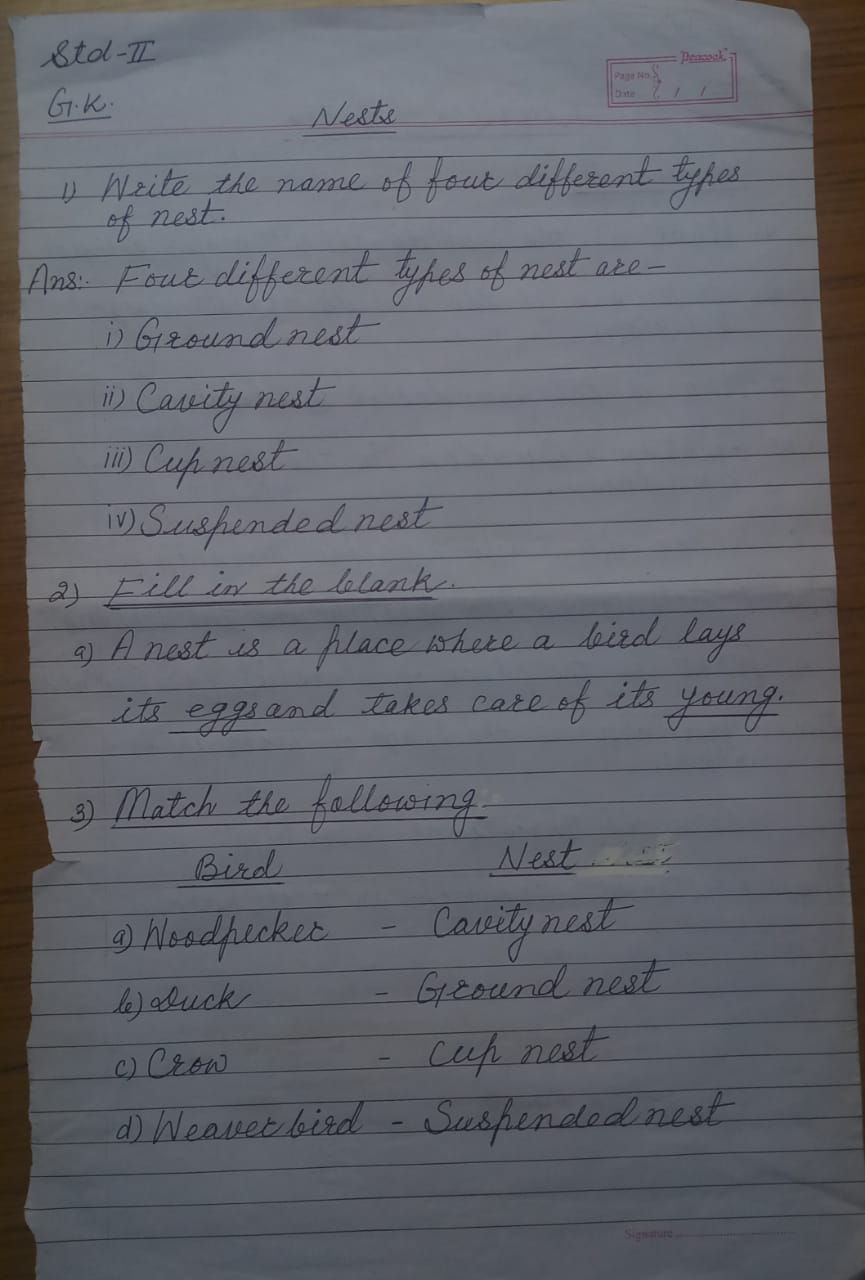 Std-II
Peacock
Page No.
Date / /
G.K.
Nests
1) Write the name of four different types
of nest.
Ans:- Four different types of nest are-
i) Ground nest
ii) Cavity nest
iii) Cup nest
iv) Suspended nest
2) Fill in the blank.
a) A nest is a place where a bird lays
its eggs and takes care of its young.
3) Match the following
Bird Nest
a) Woodpecker - Cavity nest
b) Duck - Ground nest
c) Crow - Cup nest
d) Weaver bird - Suspended nest
Signature